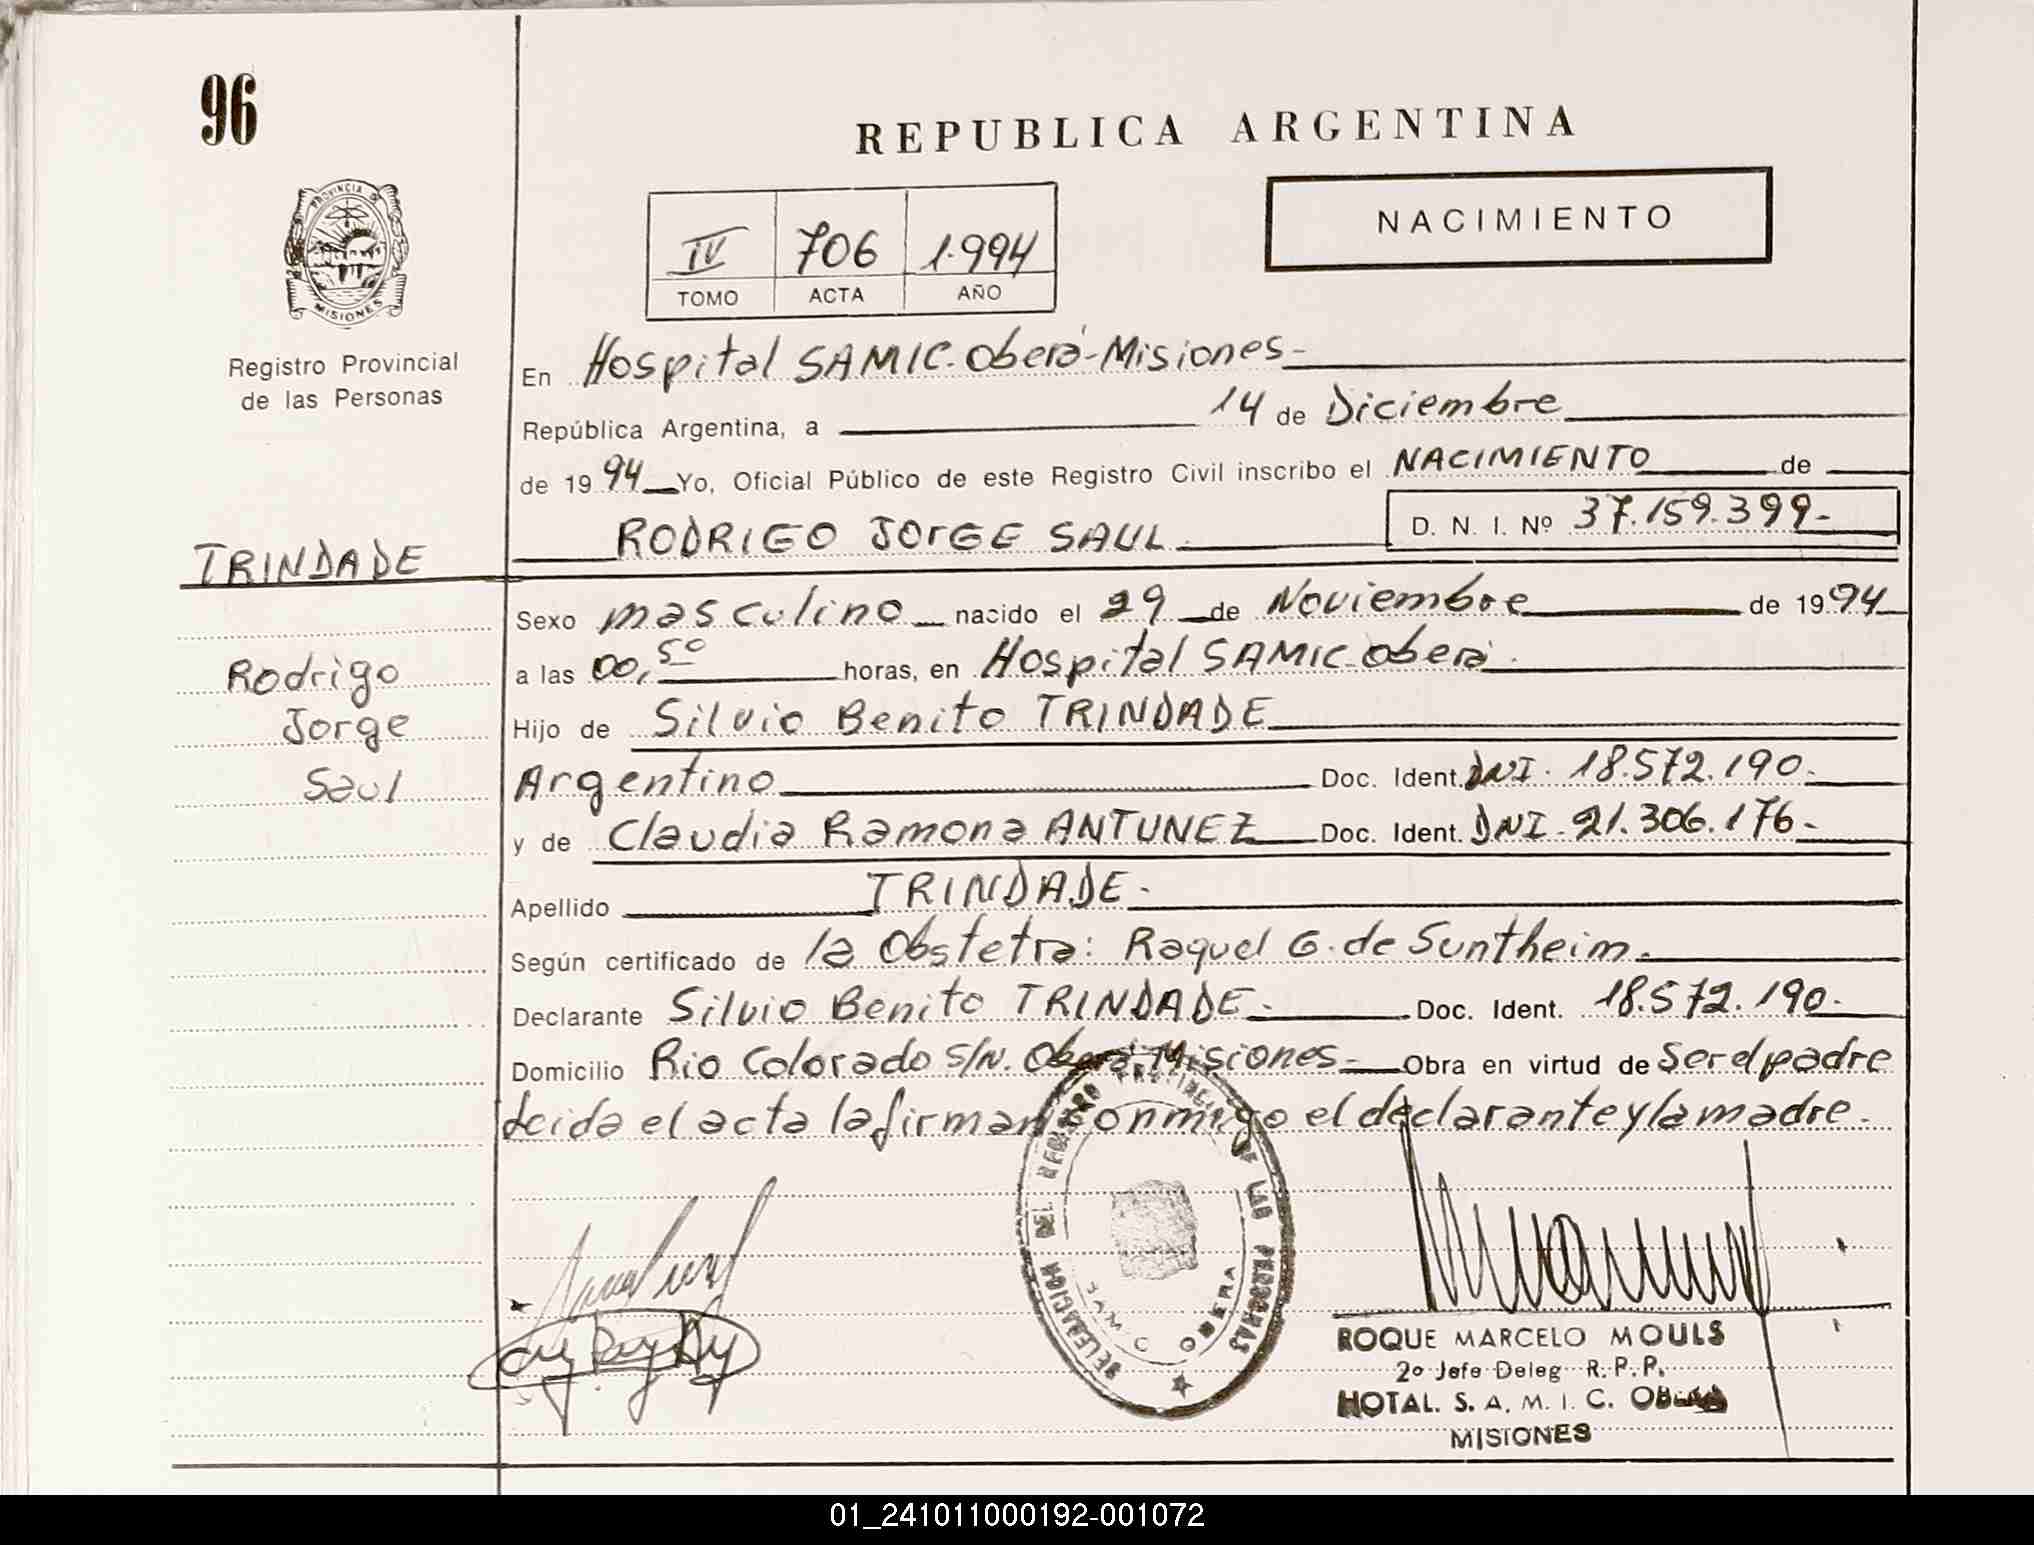 96
REPUBLICA ARGENTINA
PROVINCIA DE
MISIONES
Registro Provincial
de las Personas
IV 706 1.994
TOMO ACTA AÑO
NACIMIENTO
En Hospital SAMIC. Oberá-Misiones-
República Argentina, a 14 de Diciembre
de 1994 Yo, Oficial Público de este Registro Civil inscribo el NACIMIENTO de
RODRIGO JORGE SAUL.
D. N. I. Nº 37.159.399-
TRINDADE
Rodrigo
Jorge
Saul
Sexo masculino nacido el 29 de Noviembre de 1994
a las 00,50 horas, en Hospital SAMIC-Oberá.
Hijo de Silvio Benito TRINDADE
Argentino Doc. Ident. DNI. 18.572.190.
y de Claudia Ramona ANTUNEZ Doc. Ident. DNI. 21.306.176-
Apellido TRINDADE.
Según certificado de la Obstetra: Raquel G. de Suntheim.
Declarante Silvio Benito TRINDADE. Doc. Ident. 18.572.190.
Domicilio Rio Colorado S/N. Oberá-Misiones- Obra en virtud de Ser el padre
Leida el acta la firman conmigo el declarante y la madre.
DELEGACION DEL REGISTRO PROVINCIAL DE LAS PERSONAS
SAMIC OBERA
ROQUE MARCELO MOULS
2º Jefe Deleg R.P.P.
HOTAL. S. A. M. I. C.
MISIONES
01_241011000192-001072